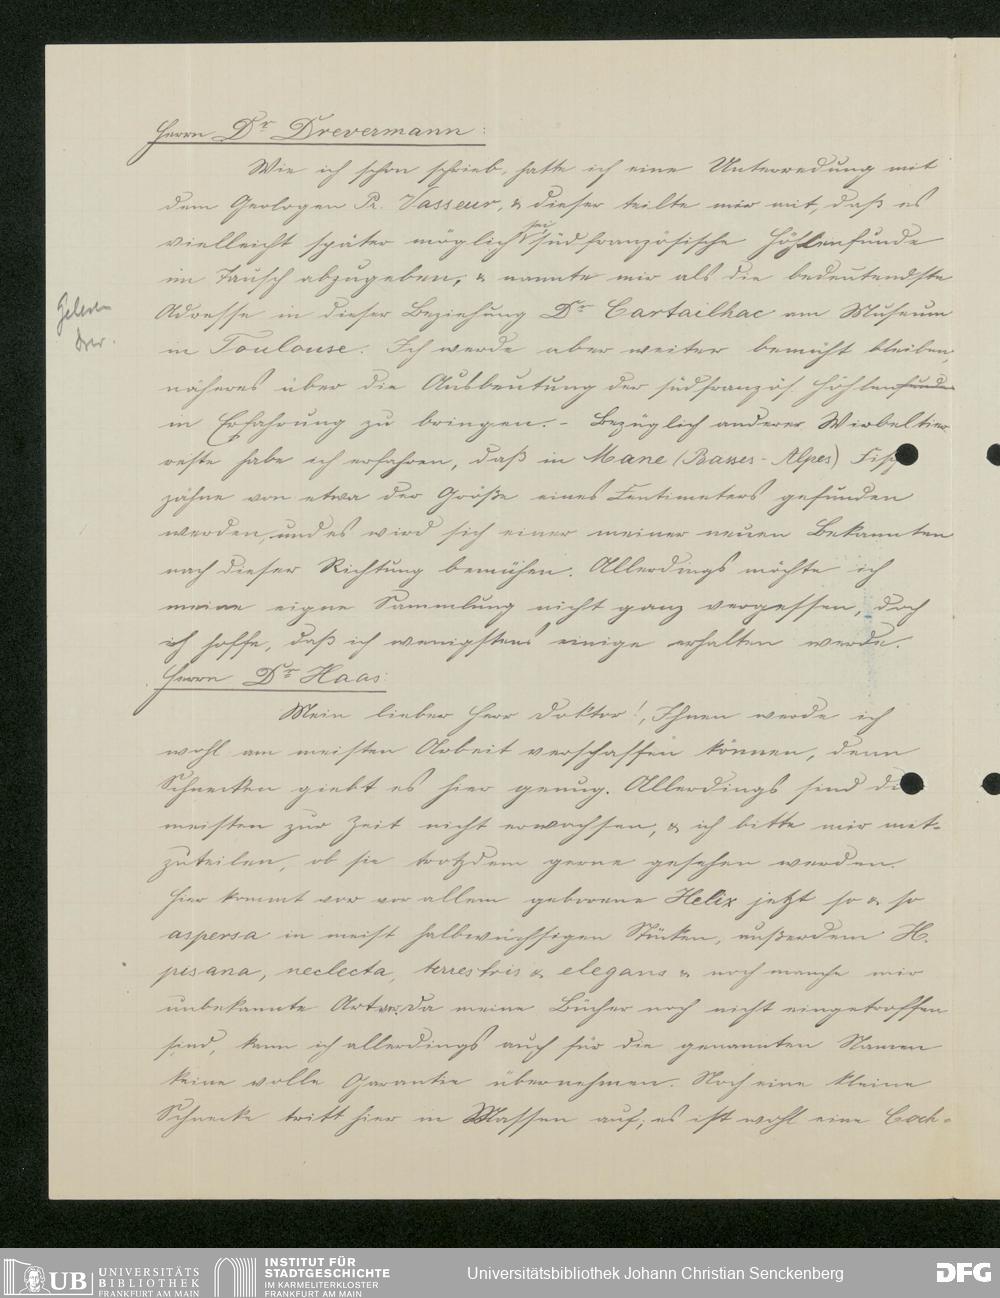 Herrn Dr Drevermann:
Wie ich schon schrieb, hatte ich eine Unterredung mit
dem Geologen Pr. Vasseur, & dieser teilte mir mit, daß es
vielleicht später möglich sei südfranzösische Höhlenfunde
im Tausch abzugeben, & nannte mir als die bedeutendste
Adresse in dieser Beziehung Dr Cartailhac am Museum
in Toulouse. Ich werde aber weiter bemüht bleiben,
näheres über die Ausbeutung der südfranzös. Höhlenfunde
in Erfahrung zu bringen. - Bezüglich anderer Wirbeltier
reste habe ich erfahren, daß in Mane (Basses-Alpes) Fisch
zähne von etwa der Größe eines Centimeters gefunden
werden, und es wird sich einer meiner neuen Bekannten
nach dieser Richtung bemühen. Allerdings möchte ich
meine eigne Sammlung nicht ganz vergessen, doch
ich hoffe, daß ich wenigstens einige erhalten werde.
Gelesen
Drev.
Herrn Dr Haas:
Mein lieber Herr Doktor!, Ihnen werde ich
wohl am meisten Arbeit verschaffen können, denn
Schnecken giebt es hier genug. Allerdings sind die
meisten zur Zeit nicht erwachsen, & ich bitte mir mit-
zuteilen, ob sie trotzdem gerne gesehen werden.
Hier kommt vor vor allem geborene Helix jetzt so & so
aspersa in meist halbwüchsigen Stücken, außerdem H.
pisana, neclecta, terrestris & elegans & noch manche mir
unbekannte Arten; da meine Bücher noch nicht eingetroffen
sind, kann ich allerdings auch für die genannten Namen
keine volle Garantie übernehmen. Noch eine kleine
Schnecke tritt hier in Massen auf; es ist wohl eine Coch-
UB UNIVERSITÄTS
BIBLIOTHEK
FRANKFURT AM MAIN
INSTITUT FÜR
STADTGESCHICHTE
IM KARMELITERKLOSTER
FRANKFURT AM MAIN
Universitätsbibliothek Johann Christian Senckenberg
DFG